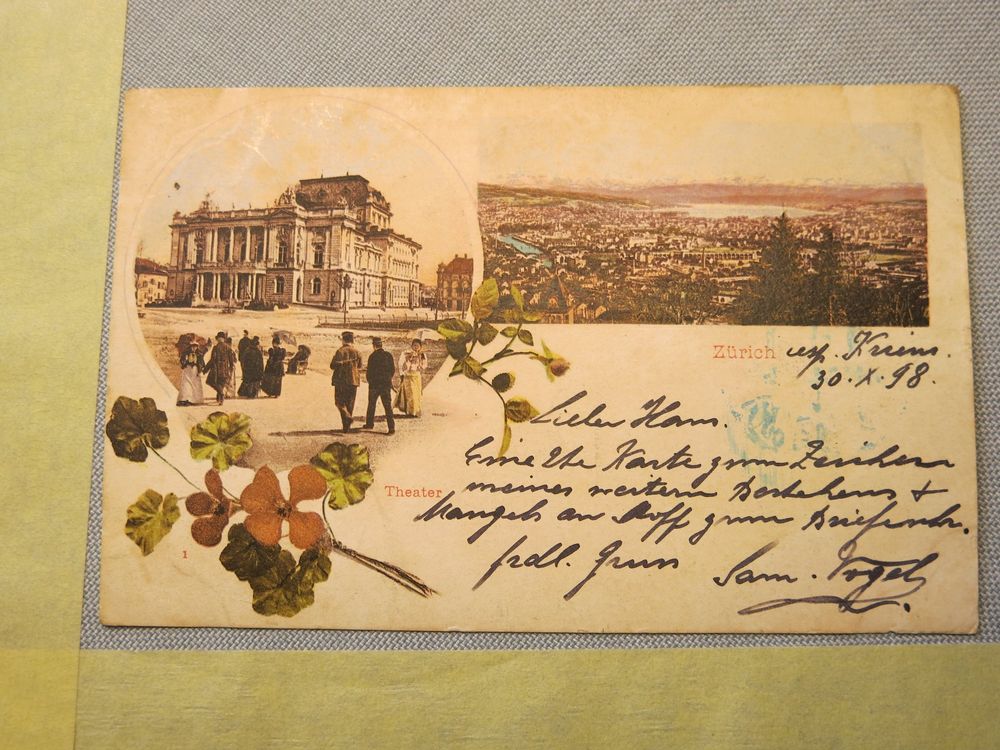 Zürich exp. Kriens.
30.X.98.
Lieber Hans.
Eine 2te Karte zum Zeichen
meines weitern Bestehens +
Mangels an Stoff zum Briefschr.
frdl. Gruss Sam. Vogel
Theater
1